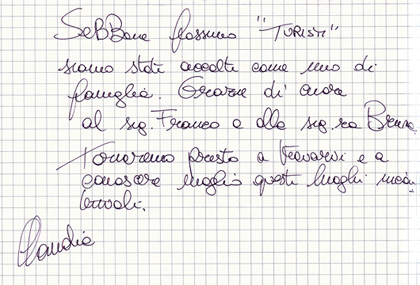 SeBBene fossimo "TURISTI"
siamo stati accolti come uno di
famiglia. Grazie di cuore
al sig. Franco e alla sig.ra Bruna
Torneremo presto a trovarvi e a
conoscere meglio questi luoghi incan
tevoli.
Claudia